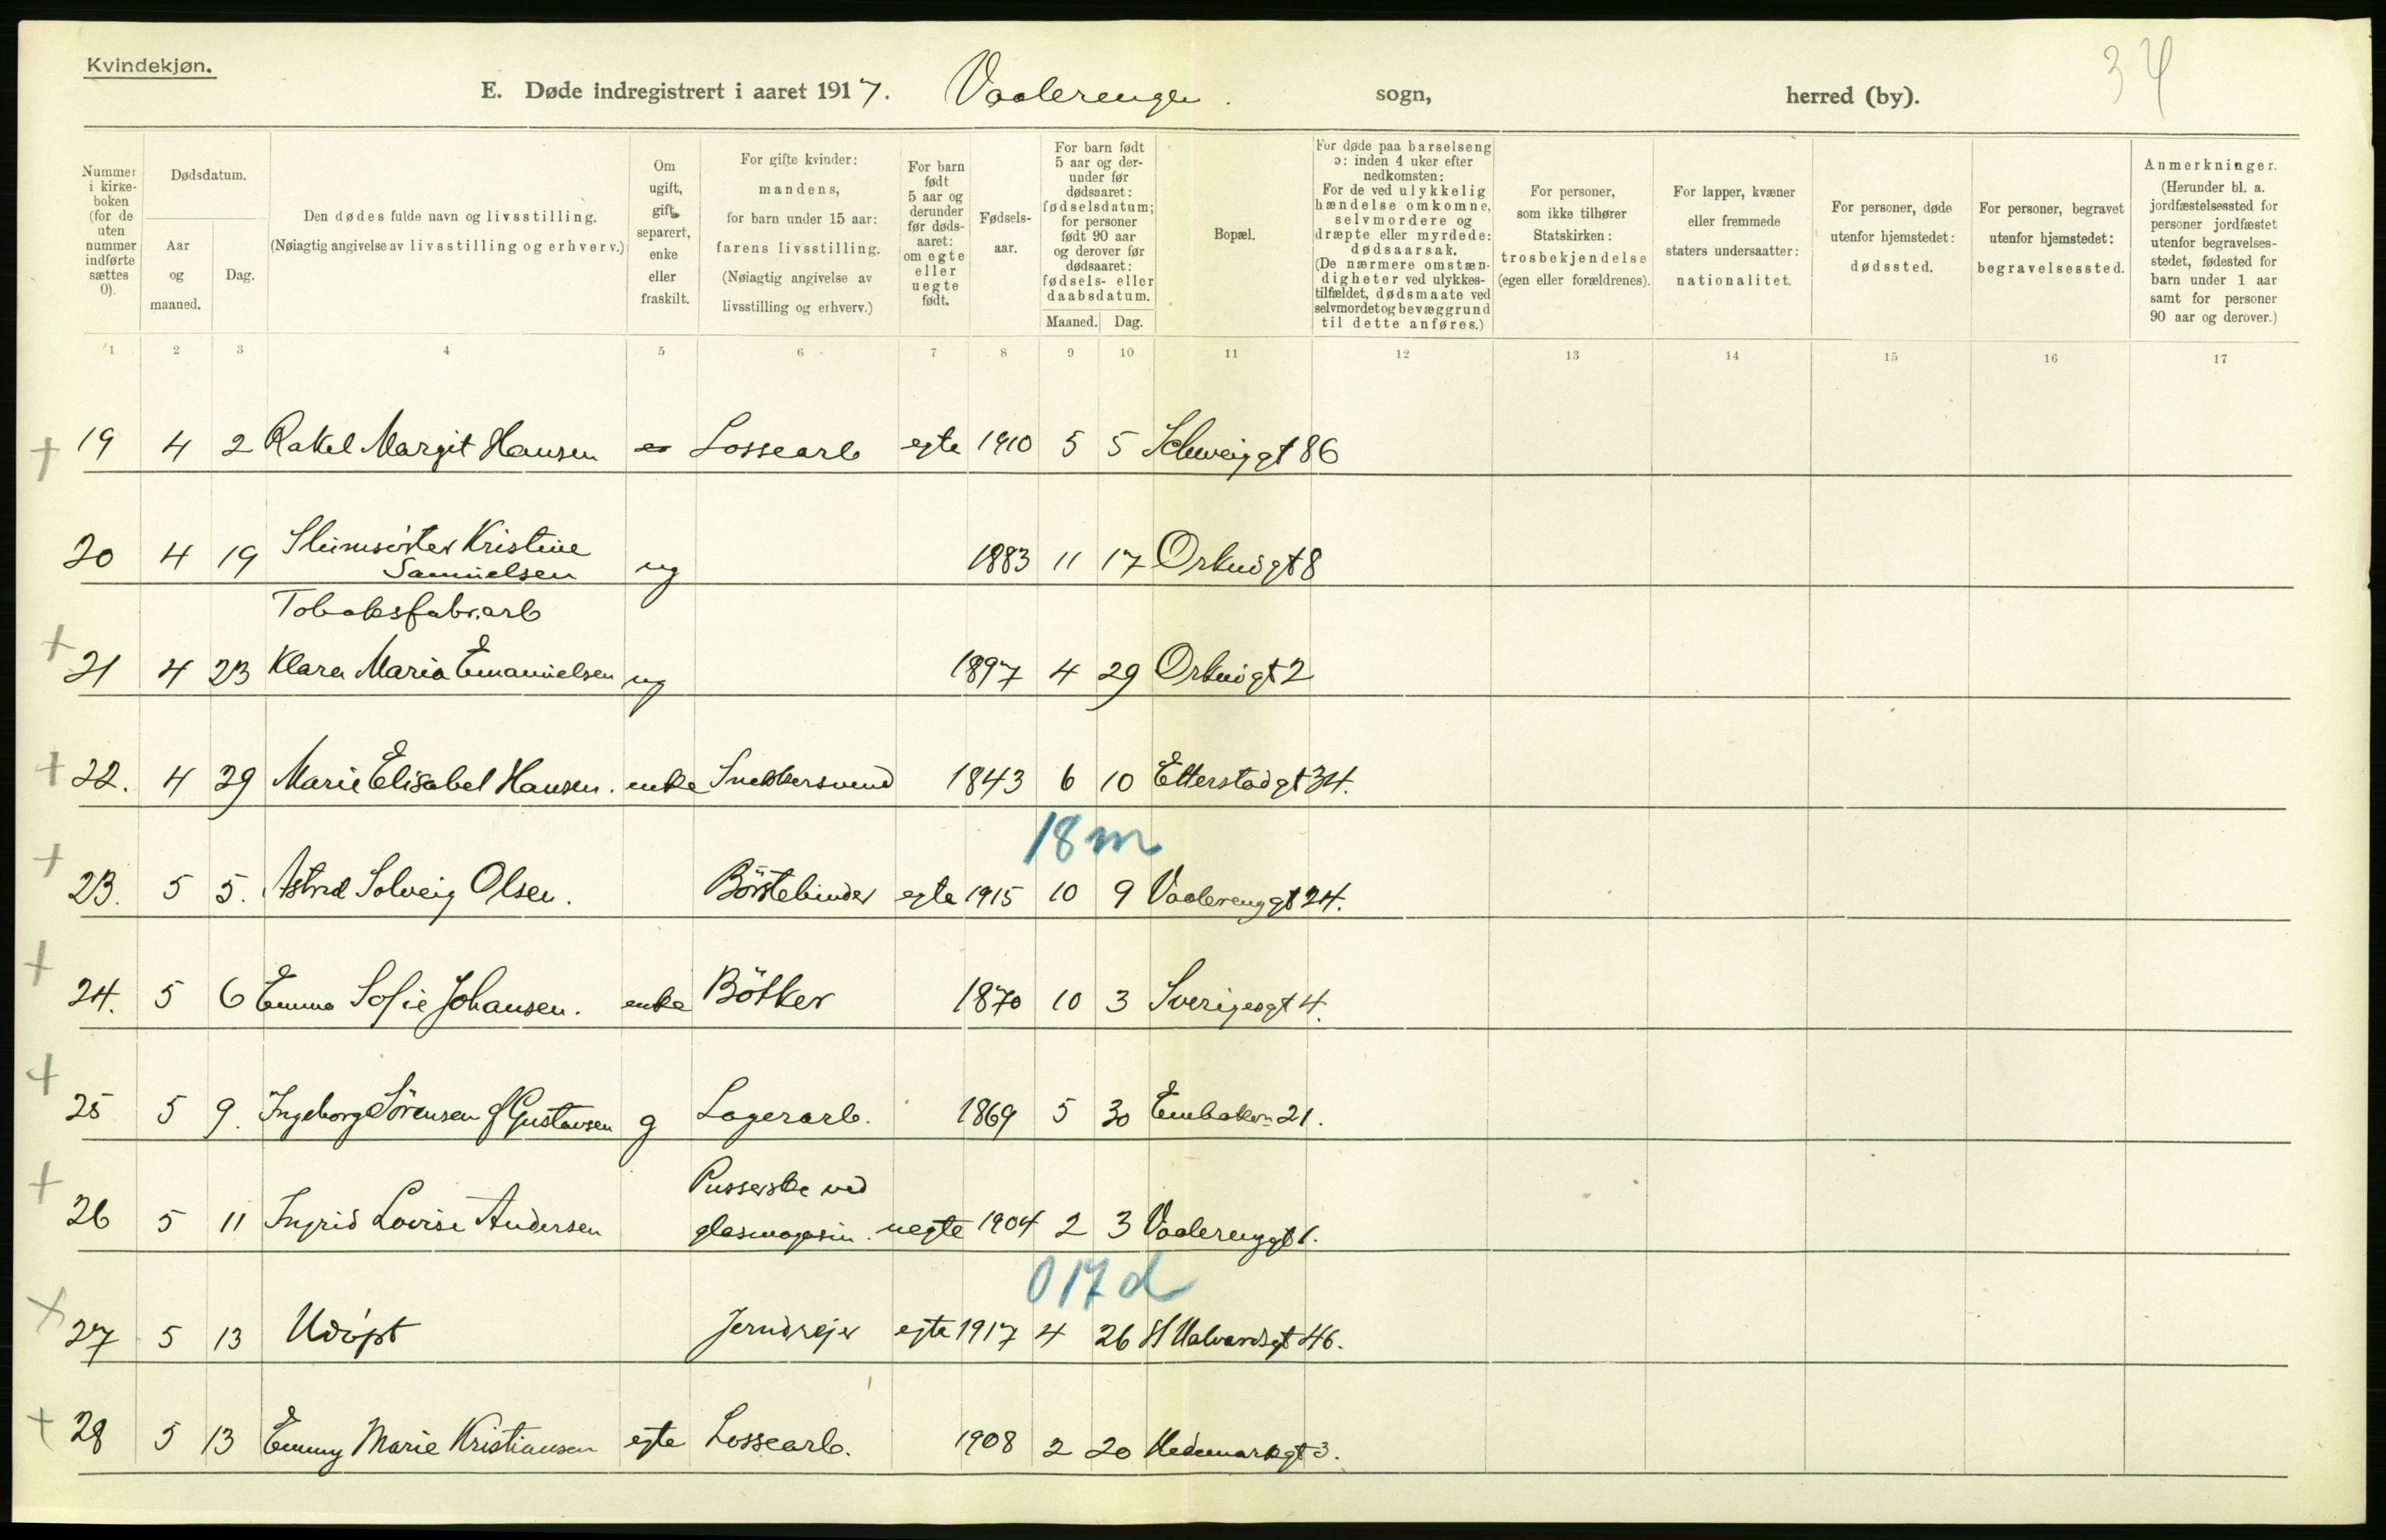 Kvindekjøn.
34
E. Døde indregistrert i aaret 1917. Vaalerengen. sogn, herred (by).
Nummer i kirke- boken (for de uten nummer indførte sættes 0).
Dødsdatum.
Aar og maaned.
Dag.
Den dødes fulde navn og livsstilling.
(Nøiagtig angivelse av livsstilling og erhverv.)
Om ugift, gift, separert, enke eller fraskilt.
For gifte kvinder: mandens, for barn under 15 aar: farens livsstilling. (Nøiagtig angivelse av livsstilling og erhverv.)
For barn født 5 aar og derunder før døds- aaret: om egte eller uegte født.
Fødsels- aar.
For barn født 5 aar og der- under før dødsaaret: fødselsdatum; for personer født 90 aar og derover før dødsaaret: fødsels- eller daabsdatum.
Maaned. Dag.
Bopæl.
For døde paa barselseng ɔ: inden 4 uker efter nedkomsten: For de ved ulykkelig hændelse omkomne, selvmordere og dræpte eller myrdede: dødsaarsak. (De nærmere omstæn- digheter ved ulykkes- tilfældet, dødsmaate ved selvmordet og bevæggrund til dette anføres.)
For personer, som ikke tilhører Statskirken: trosbekjendelse (egen eller forældrenes).
For lapper, kvæner eller fremmede staters undersaatter: nationalitet.
For personer, døde utenfor hjemstedet: dødssted.
For personer, begravet utenfor hjemstedet: begravelsessted.
Anmerkninger. (Herunder bl. a. jordfæstelsessted for personer jordfæstet utenfor begravelses- stedet, fødested for barn under 1 aar samt for personer 90 aar og derover.)
1 2 3 4 5 6 7 8 9 10 11 12 13 14 15 16 17
+ 19 4 2 Rakel Margit Hansen Lossearb egte 1910 5 5 Schweiggt 86
20 4 19 Kristine Samuelsen ug 1883 11 17 Orknögt 8
Tobaksfabr.arb
+ 21 4 23 Klara Maria Emanuelsen ug 1897 4 29 Orknögt 2
+ 22. 4 29 Marie Elisabet Hansen. enke Snekkersvend 1843 6 10 Etterstadgt 34.
18 m
+ 23. 5 5. Astrid Solveig Olsen. Börstebinder egte 1915 10 9 Vaalerenggt 24.
+ 24. 5 6 Emma Sofie Johansen. enke Bötker 1870 10 3 Sverigesgt 4.
+ 25 5 9. Ingeborg Sörensen f Gustavsen g Lagerarb. 1869 5 30 Enebakv. 21.
Pusserske ved
+ 26 5 11 Ingrid Lovise Andersen glasmagasin. uegte 1904 2 3 Vaalerenggt 1.
0 17 d
+ 27 5 13 Udöpt Jerndrejer egte 1917 4 26 St Halvardsgt 46.
+ 28 5 13 Emmy Marie Kristiansen egte Lossearb. 1908 2 20 Hedemarkgt 3.